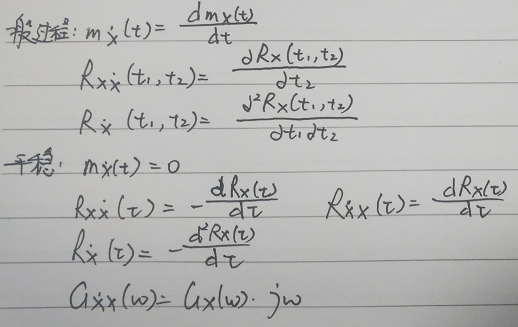 般过程: m_Ẋ(t) = dm_X(t)/dt
R_XẊ(t₁,t₂) = ∂R_X(t₁,t₂)/∂t₂
R_Ẋ(t₁,t₂) = ∂²R_X(t₁,t₂)/∂t₁∂t₂
平稳: m_Ẋ(t) = 0
R_XẊ(τ) = -dR_X(τ)/dτ R_ẊX(τ) = dR_X(τ)/dτ
R_Ẋ(τ) = -d²R_X(τ)/dτ
G_ẊX(ω) = G_X(ω)·jω